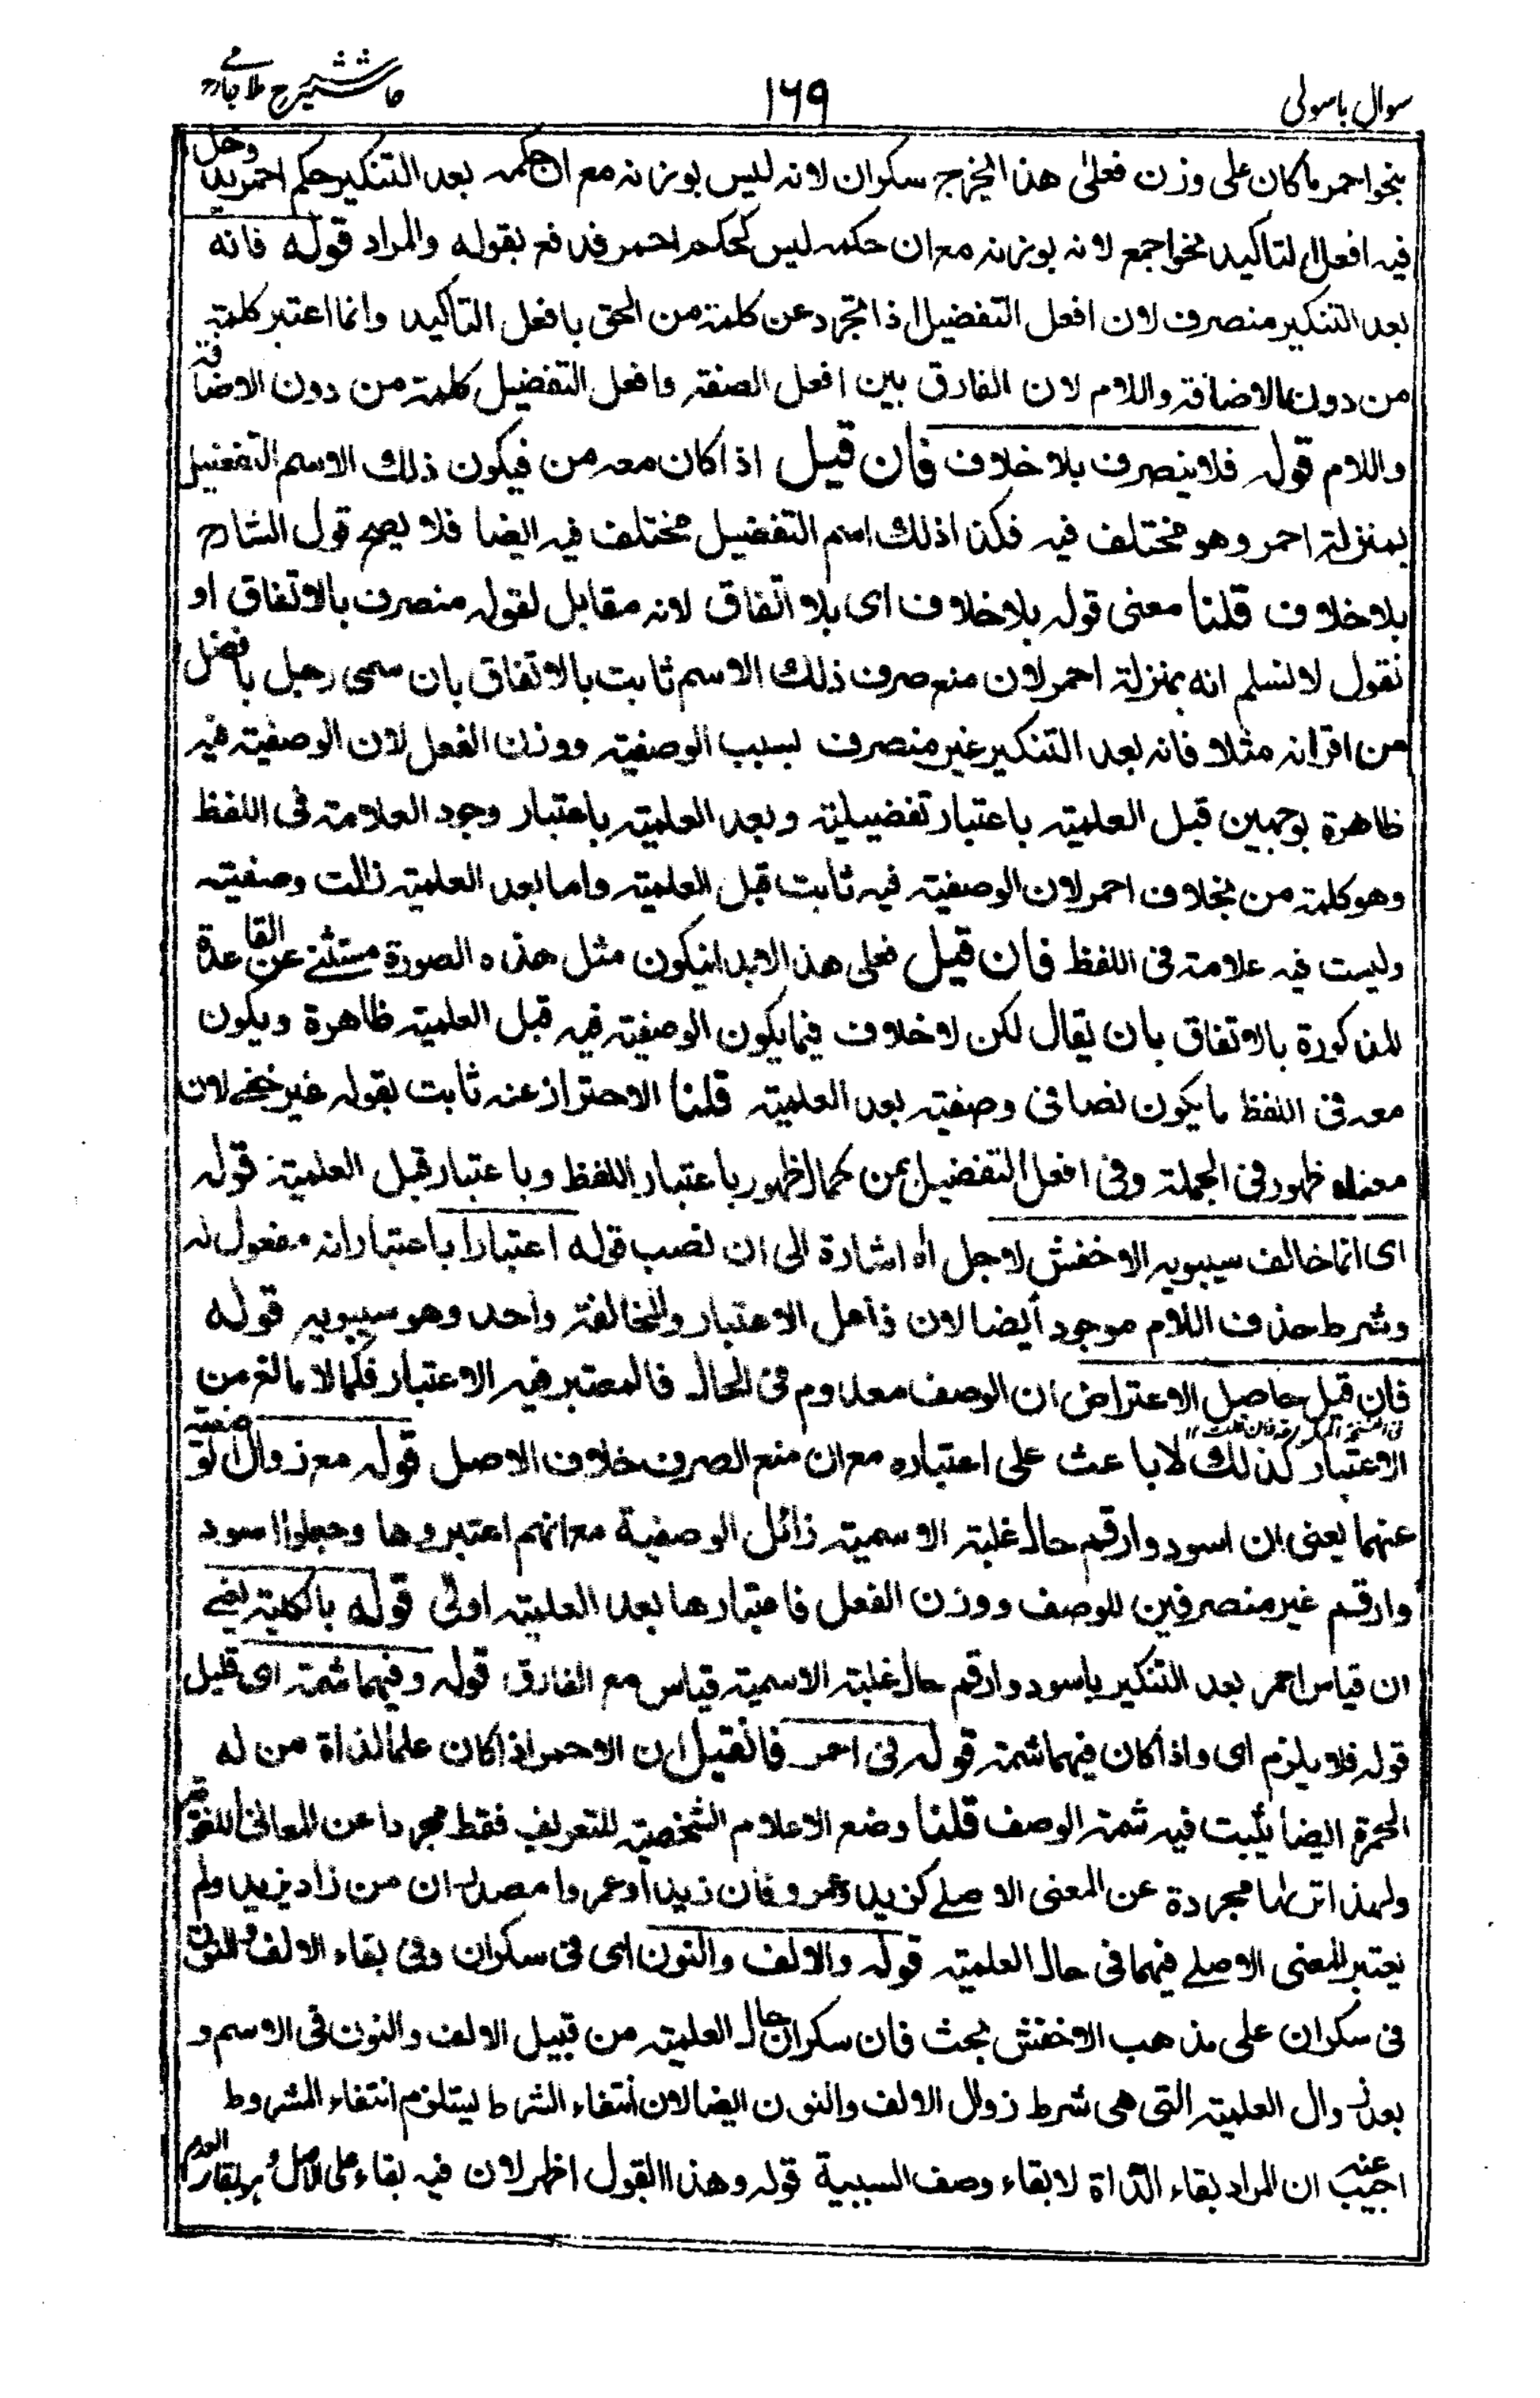 سوال باسولی
۱۶۹
حاشیہ شرح ملا جامی
بنحو احمر ما کان علی وزن فعلی هذا یخرج سکران لانه لیس بوزنه مع ان حکمه بعد التنکیر حکم احمر
فیه افعل التاکید نحو اجمع لانه بوزنه مع ان حکمه لیس کحکم احمر فدفع بقوله والمراد قوله فانه
بعد التنکیر منصرف لان افعل التفضیل اذا تجرد عن کلمة من الحق بافعل التاکید وانما اعتبر کلمة
من دون الاضافة واللام لان الفارق بین افعل الصفة وافعل التفضیل کلمة من دون الاضافة
واللام قوله فلا ینصرف بلا خلاف فان قیل اذا کان معه من فیکون ذلك الاسم التفضیل
بمنزلة احمر وهو مختلف فیه فکذا ذلك اسم التفضیل مختلف فیه ایضا فلا یصح قول الشارح
بلا خلاف قلنا معنی قوله بلا خلاف ای بلا اتفاق لانه مقابل لقوله منصرف بالاتفاق او
نقول لا نسلم انه بمنزلة احمر لان منع صرف ذلك الاسم ثابت بالاتفاق بان سمی رجل بافضل
من اقرانه مثلا فانه بعد التنکیر غیر منصرف لسبب الوصفیة ووزن الفعل لان الوصفیة فیه
ظاهرة بوجهین قبل العلمیة باعتبار تفضیلیة وبعد العلمیة باعتبار وجود العلامة فی اللفظ
وهو کلمة من بخلاف احمر لان الوصفیة فیه ثابت قبل العلمیة واما بعد العلمیة زالت وصفیته
ولیست فیه علامة فی اللفظ فان قیل فعلی هذا لابد ان یکون مثل هذه الصورة مستثنے عن القاعدة
المذکورة بالاتفاق بان یقال لکن لا خلاف فیما یکون الوصفیة فیه قبل العلمیة ظاهرة ویکون
معه فی اللفظ ما یکون نصا فی وصفیته بعد العلمیة قلنا الاحتراز عنه ثابت بقوله غیر خفے لان
معناه ظهور فی الجملة وفی افعل التفضیل بمن کمال ظهور باعتبار اللفظ وباعتبار قبل العلمیة قوله
ای انما خالف سیبویه الاخفش لاجل اه اشارة الی ان نصب قوله اعتبارا باعتبار انه مفعول له
وشرط حذف اللام موجود ایضا لان فاعل الاعتبار والمخالفة واحد وهو سیبویه قوله
فان قیل حاصل الاعتراض ان الوصف معدوم فی الحال فالمعتبر فیه الاعتبار فکما لا مانع من
الاعتبار کذلك لا باعث علی اعتباره مع ان منع الصرف خلاف الاصل قوله مع زوال الوصفیة
عنهما یعنی ان اسود وارقم حال غلبة الاسمیة زائل الوصفیة مع انهم اعتبروها وجعلوا اسود
وارقم غیر منصرفین للوصف ووزن الفعل فاعتبارها بعد العلمیة اولی قوله بالکلیة یعنے
ان قیاس احمر بعد التنکیر باسود وارقم حال غلبة الاسمیة قیاس مع الفارق قوله وفیهما شمة ای قلیل
قوله فلا یلزم ای واذا کان فیهما شمة قوله فی احمر فان قیل ان الاحمر اذا کان علما لذاة من له
الحمرة ایضا یثبت فیه شمة الوصف قلنا وضع الاعلام الشخصیة للتعریف فقط مجردا عن المعانی
ولهذا مجردة عن المعنی الاصلے کزید وعمر وفان زیدا وعمروا مصدران من زاد یزید ولم
یعتبر المعنی الاصلے فیهما فی حال العلمیة قوله والالف والنون ای فی سکران وفی بقاء الالف والنون
فی سکران علی مذهب الاخفش بحث فان سکران حال العلمیة من قبیل الالف والنون فی الاسم و
بعد زوال العلمیة التی هی شرط زوال الالف والنون ایضا لان انتفاء الشرط یستلزم انتفاء المشروط
اجیب عنه ان المراد بقاء الذاة لا بقاء وصف السببیة قوله وهذا القول اظهر لان فیه بقاء علی الاصل